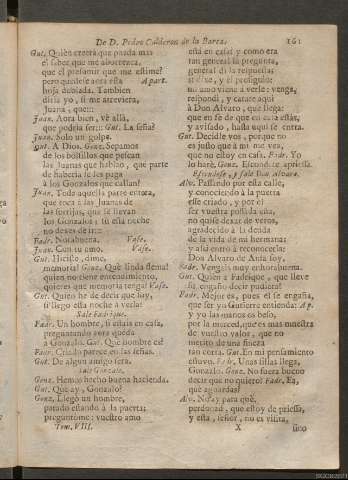 De D. Pedro Calderon de la Barca. 161
Gut. Quièn creerà que pueda mas
el saber que me aborrezca,
que el presumir que me estime?
pero quedese acra esta A part.
hoja doblada. Tambien
diria yo, si me atreviera,
Juana, que::
Juan. Aora bien, vè allà,
que podria ser:: Gut. La seña?
Juan. Solo un golpe.
Gut. A Dios. Gonz. Sepamos
de los bostillos que pescan
las Juanas que hablan, què parte
de haberia se les paga
à los Gonzalos que callan?
Juan. Toda aquella parte entera,
que toca à las Juanas de
las sortijas, que se llevan
los Gonzalos: tù esta noche
no dexes de ir::
Fadr. Norabuena. Vase.
Juan. Con tu amo. Vase.
Gut. Hiciste, dime,
memoria? Gonz. Què linda flema!
quien no tiene entendimiento,
quieres que memoria tenga? Vase.
Gut. Quien he de decir que soy,
si llego esta noche à verla?
Sale Fadrique.
Fadr. Un hombre, si estais en casa,
preguntando aora queda
à Gonzalo. Gut. Què hombre es?
Fadr. Criado parece en las señas.
Gut. De algun amigo serà.
Sale Gonzalo.
Gonz. Hemos hecho buena hacienda.
Gut. Què ay, Gonzalo?
Gonz. Llegò un hombre,
parado estando à la puerta;
preguntòme: vuestro amo
Tom. VIII.
està en casa? y como era
tan general la pregunta,
general di la respuesta:
si dixe, y el prosiguiò:
mi amo viene à verle: venga,
respondì, y catate aqui
à Don Alvaro, que llega:
que en fe de que en casa estàs,
y avisado, hasta aqui se entra.
Gut. Decidle vos, porque no
es justo que à mì me vea,
que no estoy en casa. Fadr. Yo
lo harè. Gonz. Escondete apriessa.
Escondese, y sale Don Alvaro.
Alv. Passando por esta calle,
y conociendo à la puerta
esse criado, y por el
ser vuestra possada esta,
no quise dexar de veros,
agradecido à la deuda
de la vida de mi hermana;
y assi entro à reconocerla:
Don Alvaro de Acuña soy.
Fadr. Vengais muy enhorabuena.
Gut. Quien à Fadrique, que lleve
su engaño decir pudiera!
Fadr. Mejor es, pues èl se engaña,
que ser yo Gutierre entienda: Ap.
y yo las manos os beso,
por la merced, que es mas muestra
de vuestro valor, que no
merito de una fineza
tan corta. Gut. En mi pensamiento
estuvo. Fadr. Unas sillas llega,
Gonzalo. Gonz. No fuera bueno
decir que no quiero? Fadr. Ea,
què aguardas?
Alv. No ay para què,
perdonad, que estoy de priessa,
y esta, señor, no es visita,
X sino